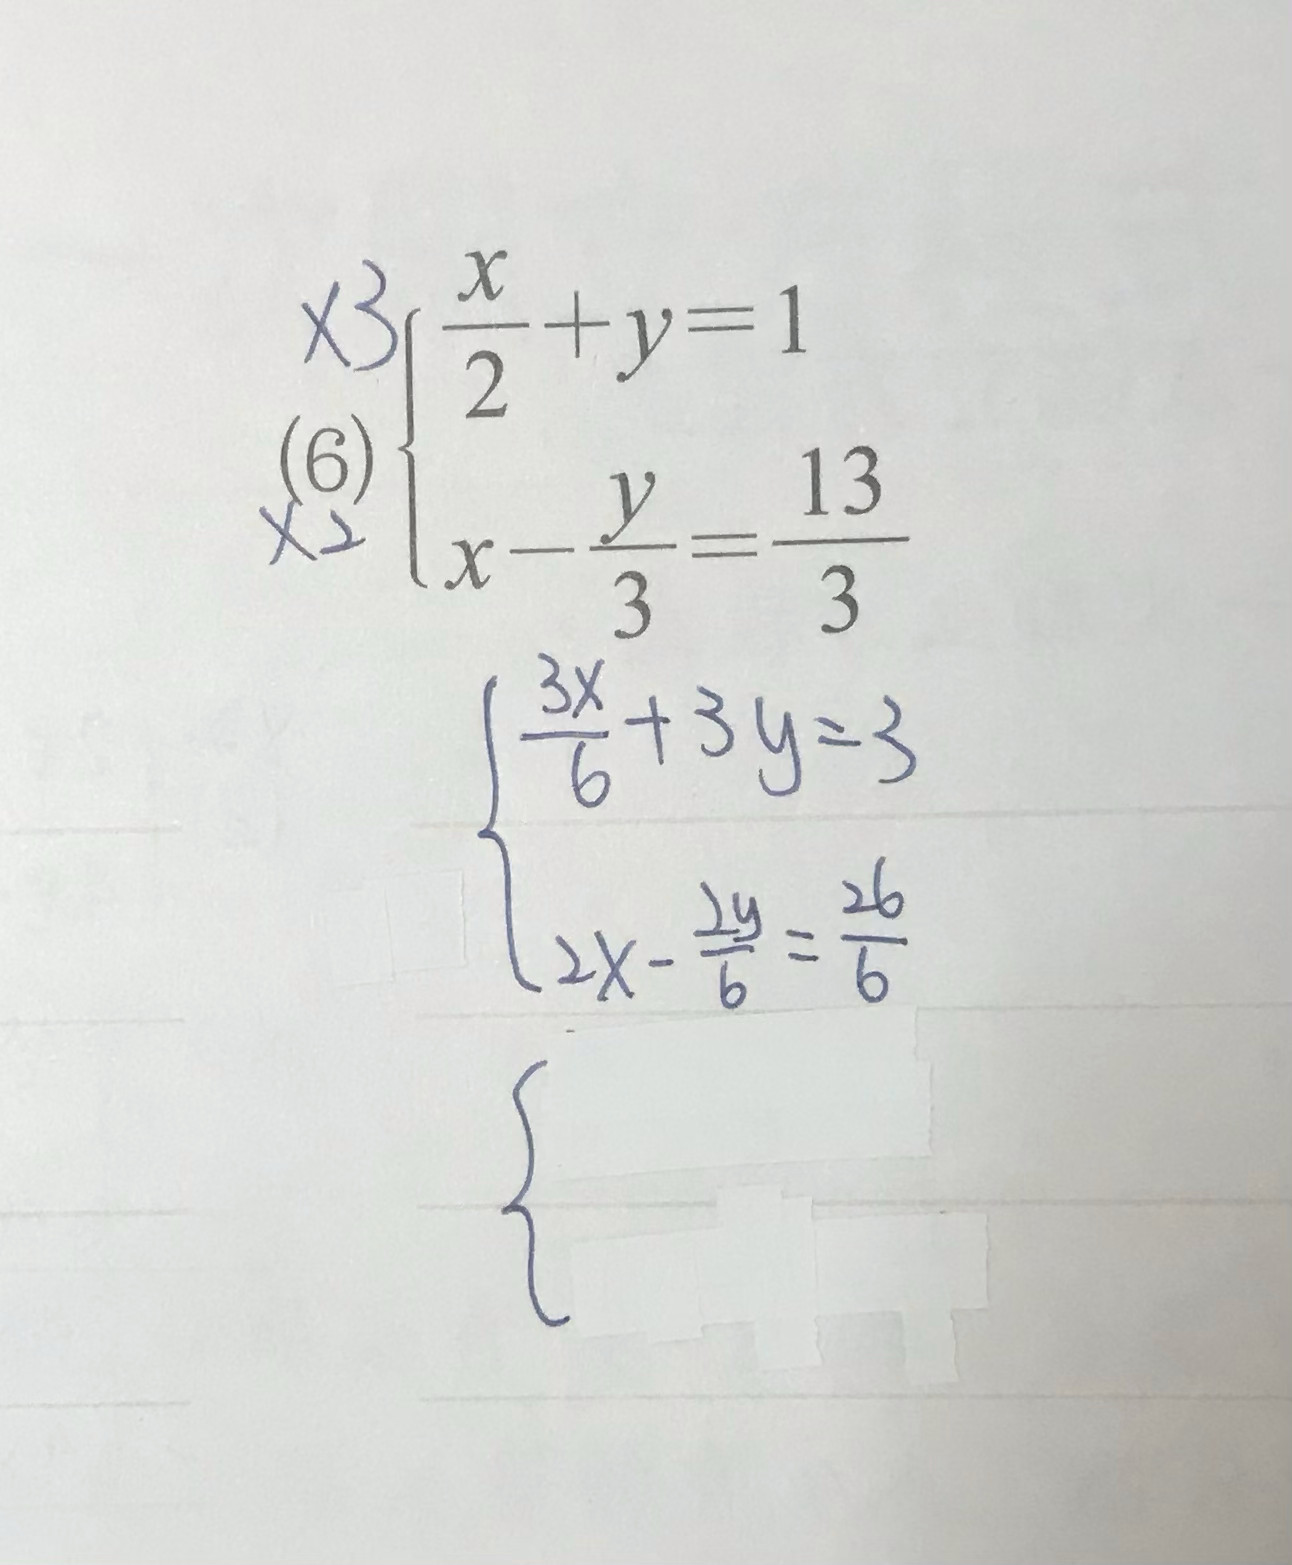 ×3 x/2 + y = 1
(6)
×2 x − y/3 = 13/3
3x/6 + 3y = 3
2x - 2y/6 = 26/6